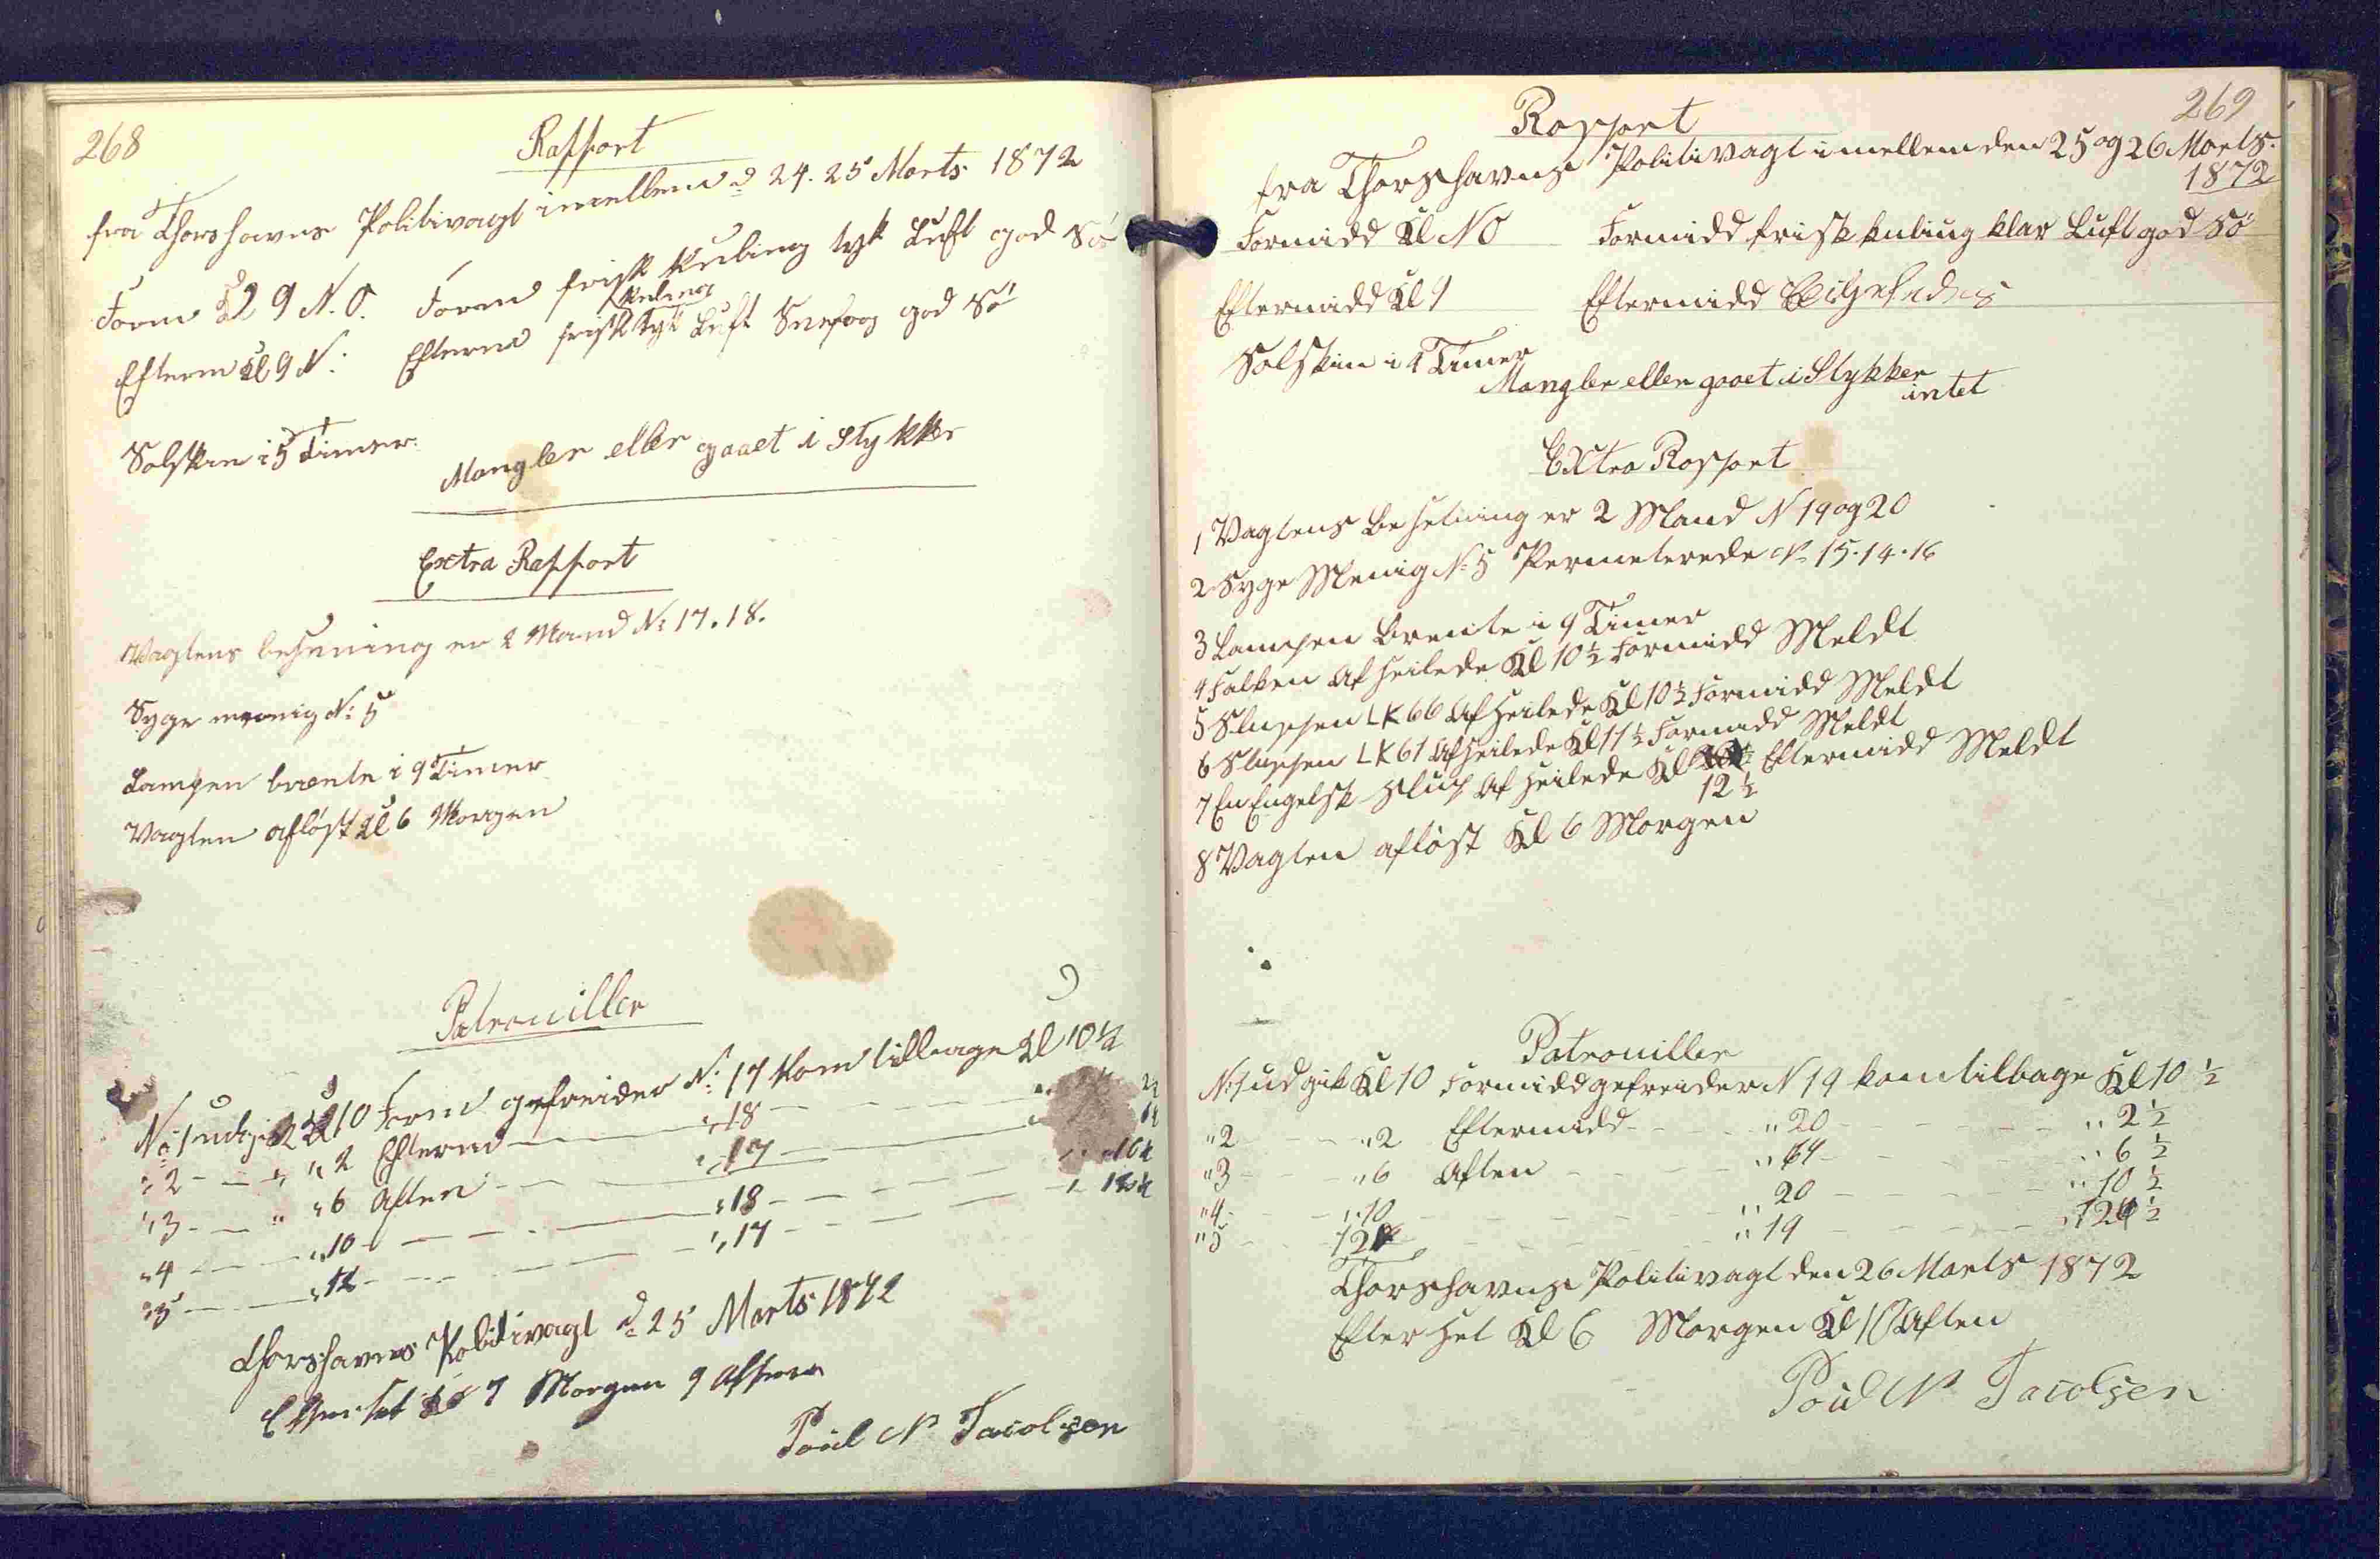 268
Rapport
fra Thorshavns Politivagt imellem d 24. 25 Marts 1872
Form Kl 9 N. O. Form frisk Kuling tyk Luft god Sö
Kuling
Efterm Kl 9 N: Efterm frisk tyk Luft Snefog god Sö
Solskin i 5 Timer
Mangler eller gaaet i Stykker
Extra Rapport
Vagtens besetning er 2 Mand No 17. 18.
Syge menig No: 5
Lampen brænte i 9 Timer
Vagten afløst Kl 6 Morgen
Patrouiller
No 1 udgik Kl 10 Form gefreider No: 17 kom tilbage Kl 10 1/2
" 2 - - " " 2 Efterm - " 18 -
" 3 - - " " 6 Aften - " 17 -
" 4 - - " 10 - - " 18 -
" 5 - - " 12 - - " 17 - 12 1/2
Thorshavns Politivagt d 25 Marts 1872
Efterset Kl 7 Morgen 9 Aften
Poul N Jacobsen
269
Rapport
fra Thorshavns Politivagt imellem den 25 og 26 Marts.
1872
Formidd Kl NO Formidd frisk kuling klar Luft god Sö
Eftermidd Kl 9 Eftermidd
Solskin i 4 Timer
Mangler eller gaaet i Stykker
intet
Extra Rapport
1 Vagtens Besetning er 2 Mand N 19 og 20
2 Syge Menig No 5 Permeterede No 15. 14. 16
3 Lampen Brente i 9 Timer
4 Falken Af Seilede Kl 10 1/2 Formidd Meldt
5 Sluppen LK 66 Af Seilede Kl 10 1/2 Formidd Meldt
6 Sluppen LK 61 Af Seilede Kl 11 1/2 Formidd Meldt
7 En Engelsk Slup Af Seilede Kl Eftermidd Meldt
12 1/2
8 Vagten afløst Kl 6 Morgen
Patrouiller
No 1 udgik Kl 10 Formidd gefreider N 19 kom tilbage Kl 10 1/2
" 2 - - " 2 Eftermidd - - " 20 - - " 2 1/2
" 3 - - " 6 Aften - - " 19 - - " 6 1/2
" 4 - - " 10 - - " 20 - - " 10 1/2
" 5 - - 12 - - " 19 - - " 12 1/2
Thorshavns Politivagt den 26 Marts 1872
Efter Set Kl 6 Morgen Kl 10 Aften
Poul N Jacobsen